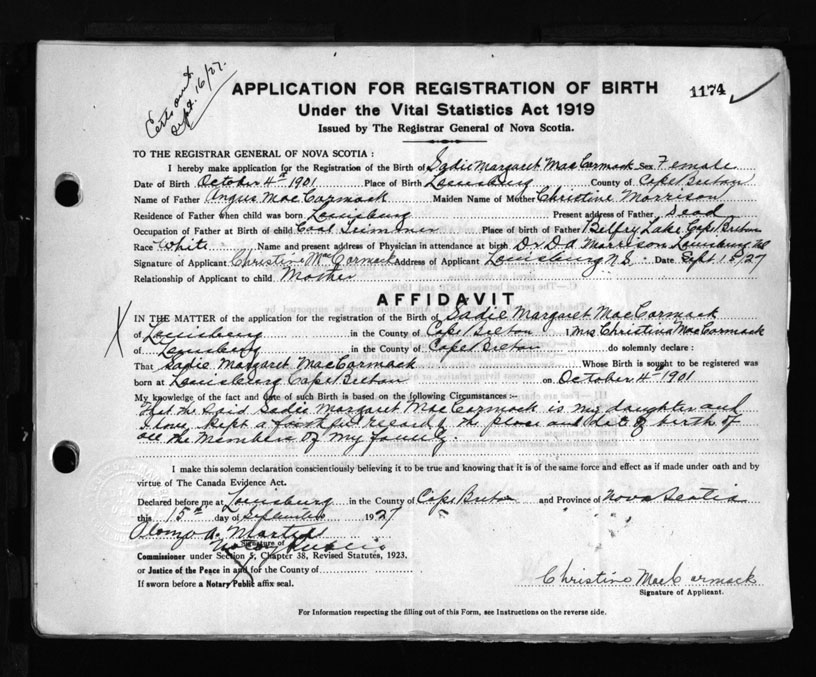 Certs out
Sept. 16/27.
APPLICATION FOR REGISTRATION OF BIRTH
1174
Under the Vital Statistics Act 1919
Issued by The Registrar General of Nova Scotia.
TO THE REGISTRAR GENERAL OF NOVA SCOTIA :
I hereby make application for the Registration of the Birth of Sadie Margaret MacCormack Sex Female
Date of Birth October 4th 1901 Place of Birth Louisburg County of Cape Breton
Name of Father Angus MacCormack Maiden Name of Mother Christine Morrison
Residence of Father when child was born Louisburg Present address of Father, Dead
Occupation of Father at Birth of child Coal Trimmer Place of birth of Father Belfry Lake Cape Breton
Race White Name and present address of Physician in attendance at birth Dr D. A. Morrison Louisburg NS
Signature of Applicant Christine McCormack Address of Applicant Louisburg N.S. Date Sept 15/27
Relationship of Applicant to child Mother
AFFIDAVIT
IN THE MATTER of the application for the registration of the Birth of Sadie Margaret MacCormack
of Louisburg in the County of Cape Breton I Mrs Christina MacCormack
of Louisburg in the County of Cape Breton do solemnly declare :
That Sadie Margaret MacCormack Whose Birth is sought to be registered was
born at Louisburg Cape Breton on October 4th 1901
My knowledge of the fact and date of such Birth is based on the following Circumstances :--
That the said Sadie Margaret MacCormack is my daughter and
I have kept a faithful record of the place and date of birth of
all the members of my family.
I make this solemn declaration conscientiously believing it to be true and knowing that it is of the same force and effect as if made under oath and by
virtue of The Canada Evidence Act.
Declared before me at Louisburg in the County of Cape Breton and Province of Nova Scotia
this 15th day of September 1927
A. Martell
Signature of
Notary Public
Commissioner under Section 5, Chapter 38, Revised Statutes, 1923.
or Justice of the Peace in and for the County of
If sworn before a Notary Public affix seal.
Christine MacCormack
Signature of Applicant.
For Information respecting the filling out of this Form, see Instructions on the reverse side.